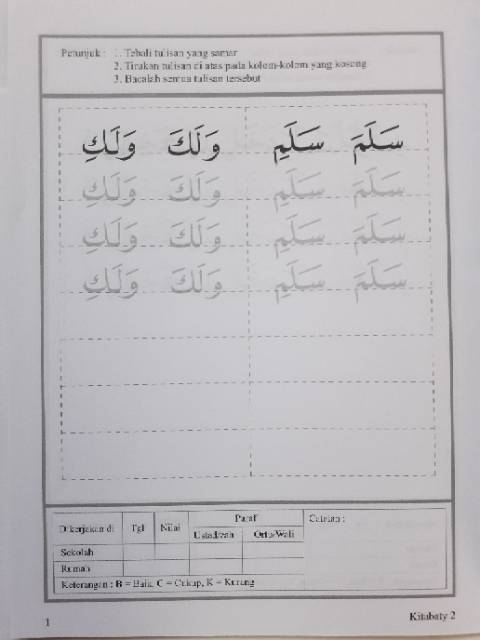 Petunjuk : 1. Tebali tulisan yang samar
2. Tirukan tulisan di atas pada kolom-kolom yang kosong
3. Bacalah semua tulisan tersebut
سَلَمَ سَلَمِ وَلَكَ وَلَكِ
سَلَمَ سَلَمِ وَلَكَ وَلَكِ
سَلَمَ سَلَمِ وَلَكَ وَلَكِ
سَلَمَ سَلَمِ وَلَكَ وَلَكِ
Dikerjakan di Tgl Nilai Paraf Catatan :
Ustadzah Ortu/Wali
Sekolah
Rumah
Keterangan : B = Baik, C = Cukup, K = Kurang
1 Kitabaty 2